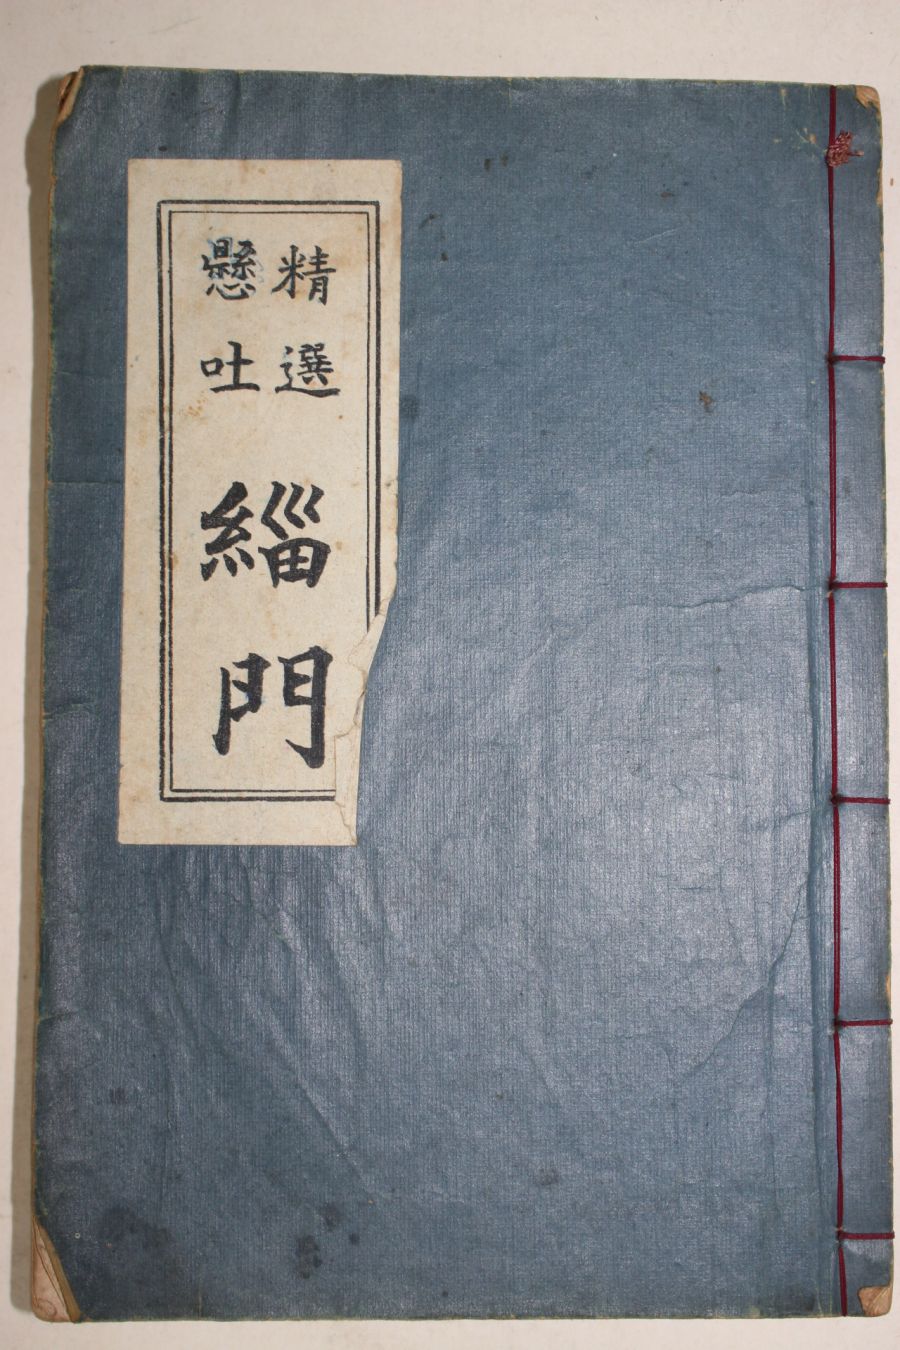 精選
懸吐
緇門